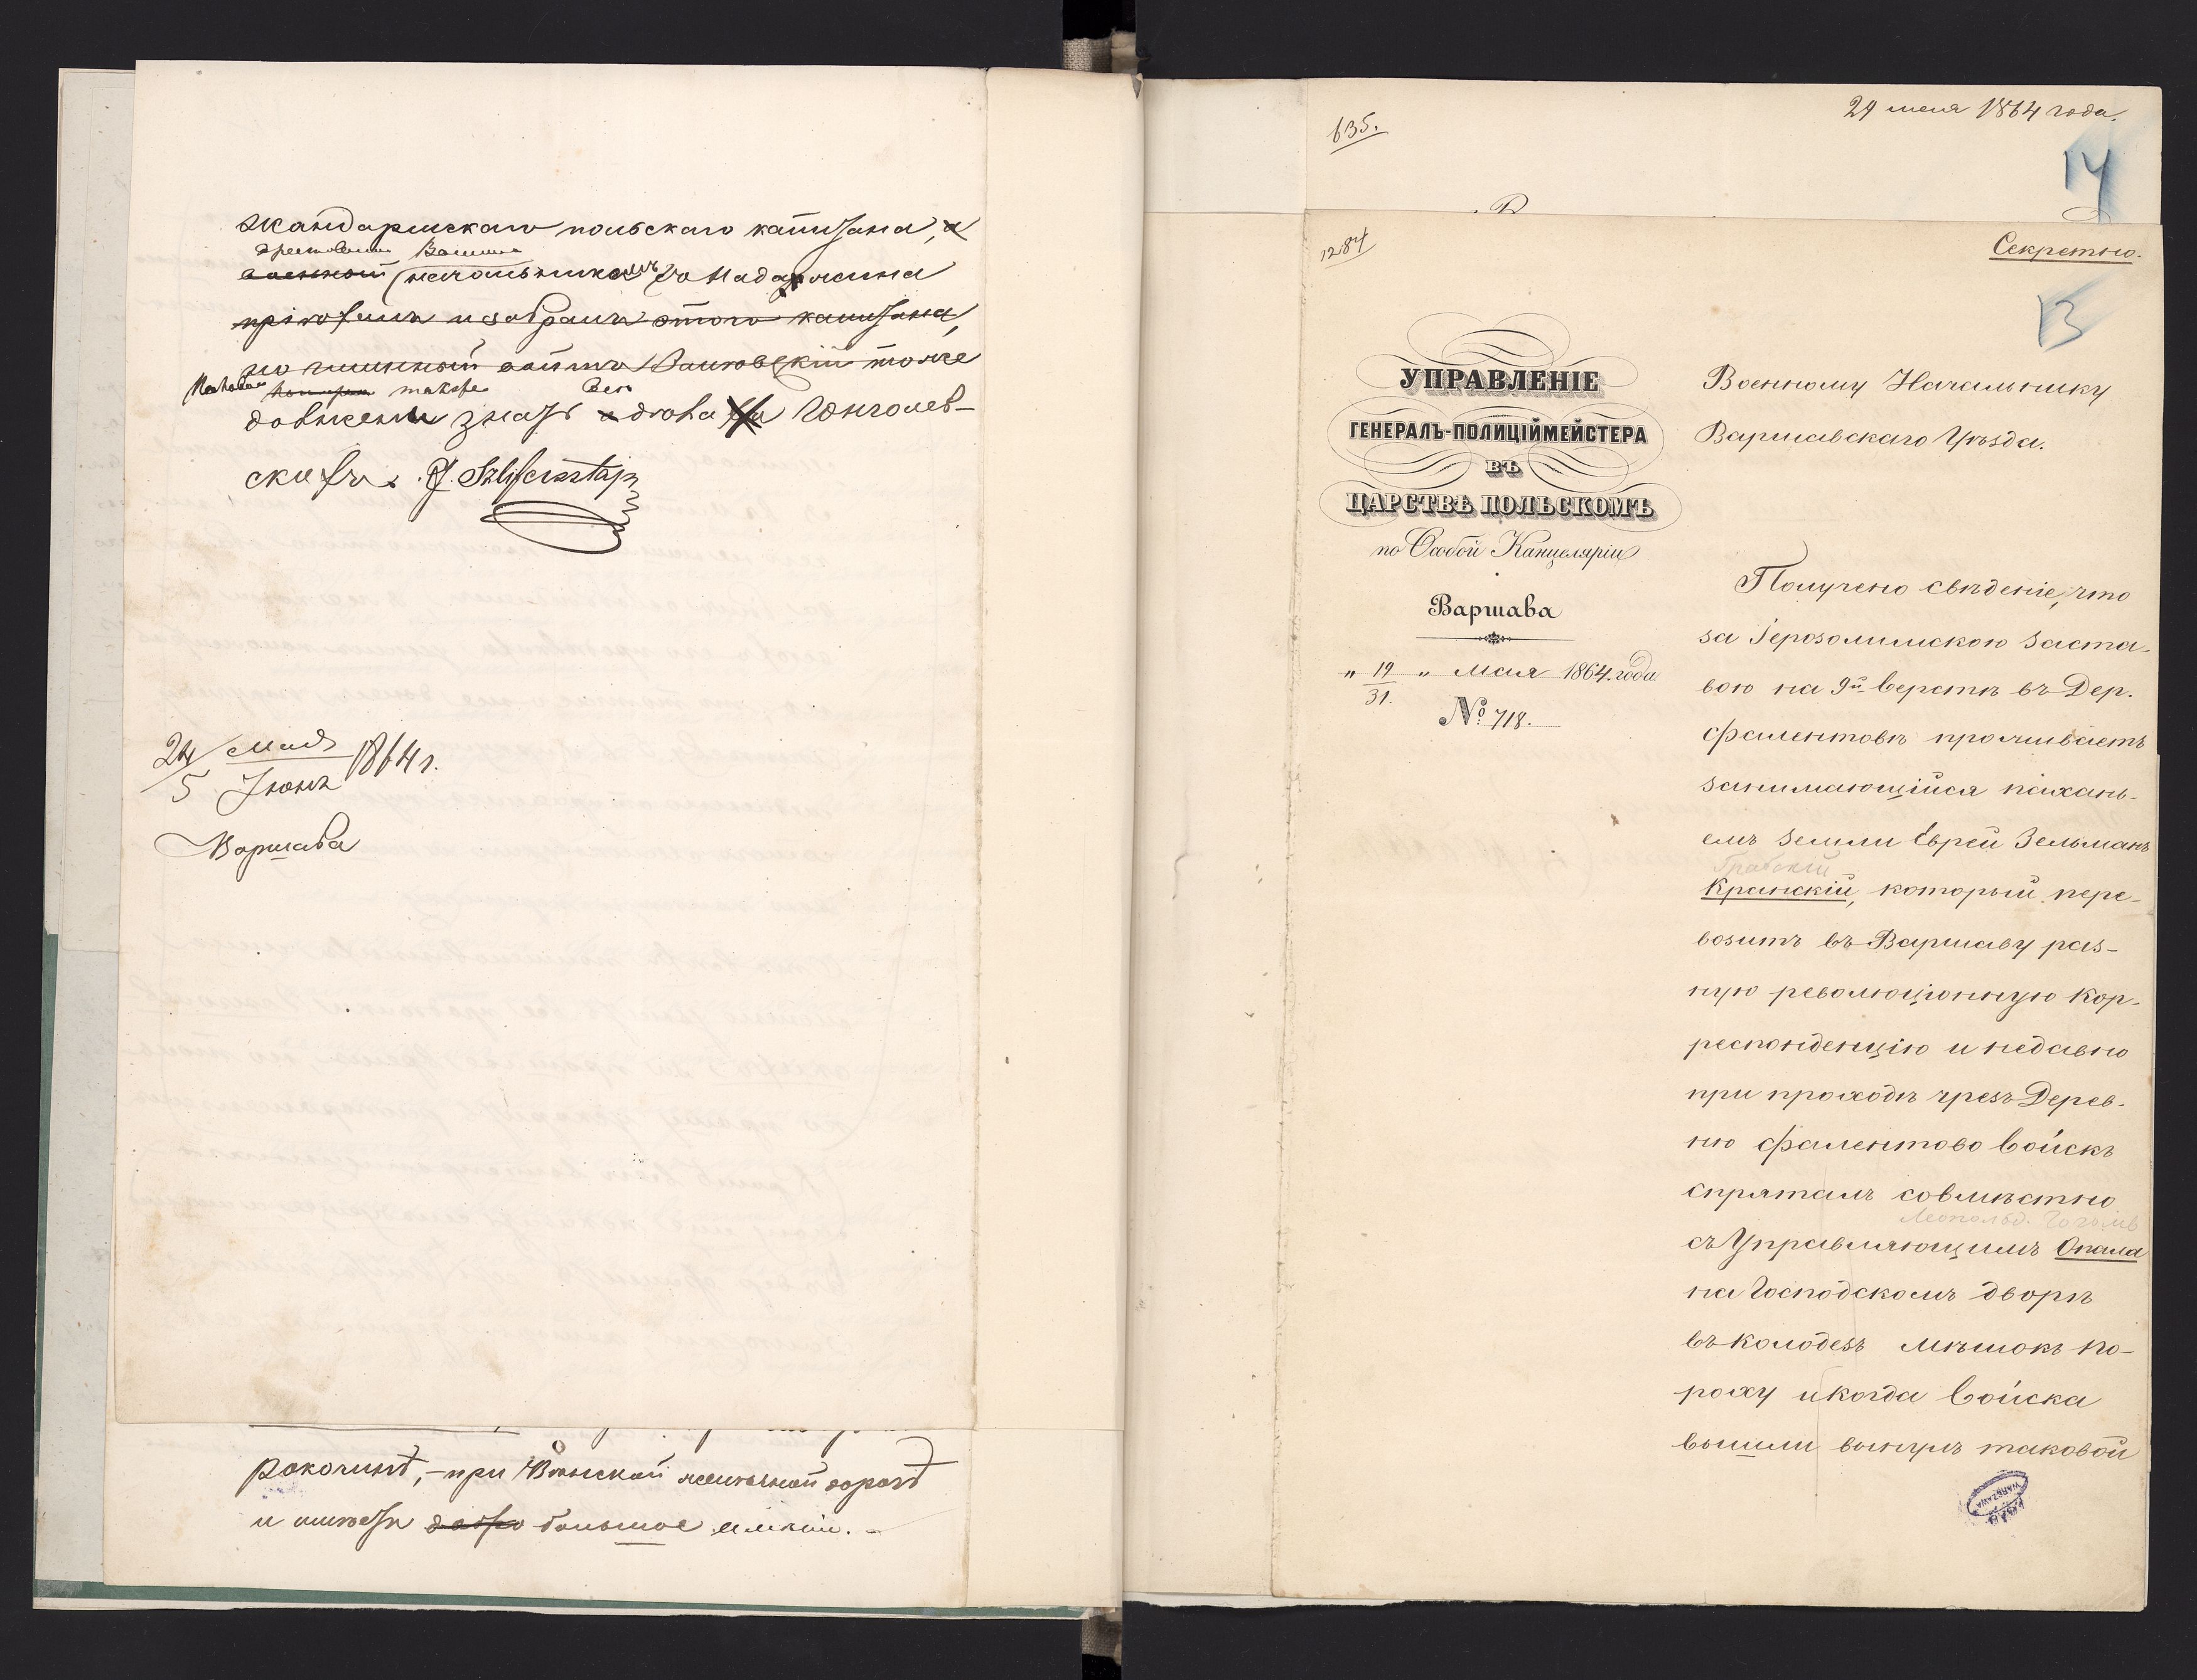 жандармскаго польскаго капитана, а
арестованъ Вашимъ
военный начальникомъ до Надаржина
пріѣхалъ и забралъ этого капитана,
но гминный войтъ тоже
также
долженъ знать
скихъ. J. Szlifersztajn
24 Мая 1864 г.
5 Іюня
Варшава
при Вѣнской желѣзной дорогѣ
и имѣетъ большое имѣніе. -
635.
29 мая 1864 года.
14
1287
Секретно.
13
УПРАВЛЕНІЕ
ГЕНЕРАЛЪ-ПОЛИЦІЙМЕЙСТЕРА
ВЪ
ЦАРСТВѢ ПОЛЬСКОМЪ
по Особой Канцеляріи
Варшава
„ 19 „ Мая 1864. года
31.
№ 718.
Военному Начальнику
Варшавскаго Уѣзда.
Получено свѣденіе, что
за Іерозолимскою заста-
вою на 9й верстѣ въ Дер.
Фалентовѣ проживаетъ
занимающійся пахань-
емъ земли Еврей Зельманъ
Грабскій
Кранскій, который пере-
возитъ въ Варшаву раз-
ную революціонную кор-
респонденцію и недавно
при проходѣ чрезъ Дерев-
ню Фалентово войскъ
спряталъ совмѣстно
Леопольд.
съ Управляющимъ Опала
на Господскомъ дворѣ
въ колодезь мѣшокъ по-
роху и когда войска
вышли вынулъ таковой
WARSZAWA